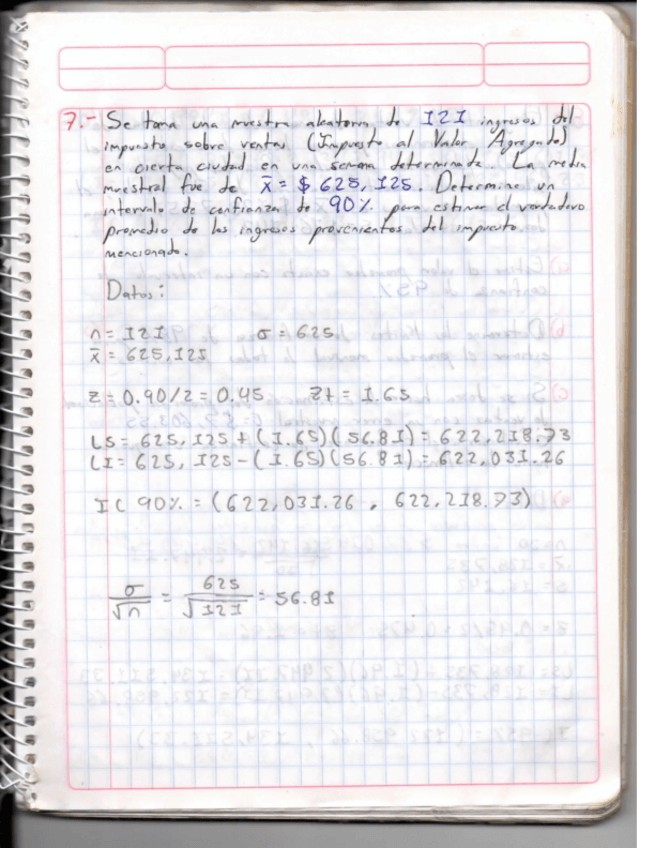 7.- Se toma una muestra aleatoria de 121 ingresos del
impuesto sobre ventas (Impuesto al Valor Agregado)
en cierta ciudad en una semana determinada. La media
muestral fue de x̄ = $ 625,125. Determine un
intervalo de confianza de 90% para estimar el verdadero
promedio de los ingresos provenientes del impuesto
mencionado.
Datos:
n = 121 σ = 625
x̄ = 625,125
Z = 0.90/2 = 0.45 Zt = 1.65
LS = 625,125 + (1.65)(56.81) = 622,218.73
LI = 625,125 - (1.65)(56.81) = 622,031.26
IC 90% = (622,031.26 , 622,218.73)
σ/√n = 625/√121 = 56.81